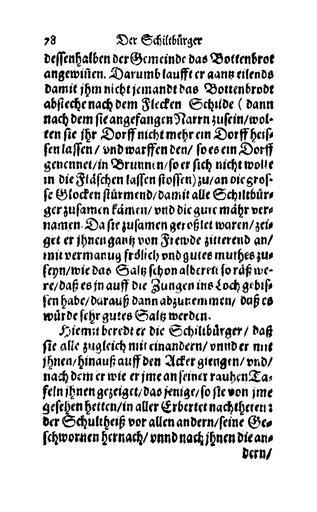 78 Der Schiltbürger
dessenhalben der Gemeinde das Bottenbrot
angewiñen. Darumb laufft er gantz eilends
damit jhm nicht jemandt das Bottenbrodt
absteche nach dem Flecken Schilde (dann
nach dem sie angefangen Narrn zusein/wol-
ten sie jhr Dorff nicht mehr ein Dorff heis-
sen lassen/ und warffen den/ so es ein Dorff
genennet/ in Brunnen/ so er sich nicht wolte
in die Fläschen lassen stossen) zu/ an die gros-
se Glocken stürmend/damit alle Schiltbür-
ger zusamen kämen/ und die gute mähr ver-
namen. Da sie zusamen geroßlet waren/ zei-
get er jhnen gantz von Frewde zitterend an/
mit vermanug frölich und gutes muthes zu-
seyn/ wie das Saltz schon albereit so räß we-
re/ daß es in auff die Zungen ins Loch gebis-
sen habe/ darauß dann abzunemmen/ daß es
würde sehr gutes Saltz werden.
Hiemit beredt er die Schiltbürger/ daß
sie alle zugleich mit einandern/ unnd er mit
jhnen/ hinauß auff den Acker giengen/ und/
nach dem er wie er jme an seiner rauhen Ta-
feln jhnen gezeiget/ das jenige/ so sie von jme
gesehen hetten/ in aller Erbertet nachtheten:
der Schultheiß vor allen andern/ seine Ge-
schwornen hernach/ unnd nach jhnen die an-
dern/